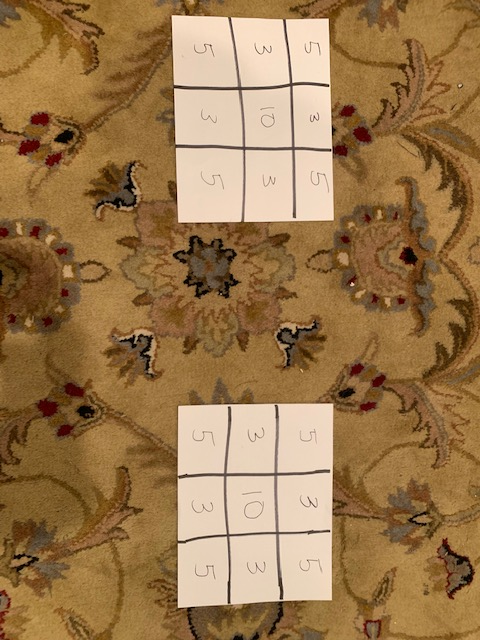 5 3 5
3 10 3
5 3 5
5 3 5
3 10 3
5 3 5